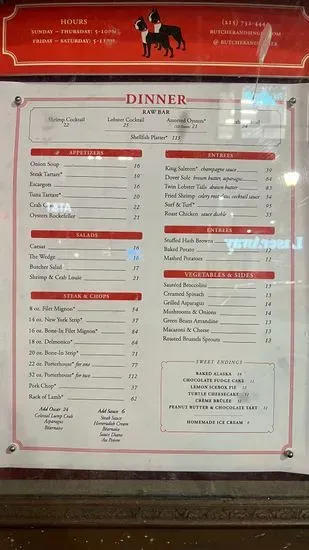 HOURS
SUNDAY - THURSDAY: 5-10PM
FRIDAY - SATURDAY: 5-11PM
(215) 732-444
BUTCHERANDSINGER.COM
@ BUTCHERANDSINGER
DINNER
RAW BAR
Shrimp Cocktail
22
Lobster Cocktail
25
Assorted Oysters*
21
Shellfish Platter* 115
APPETIZERS
Onion Soup 16
Steak Tartare*
Escargots 16
Tuna Tartare* 20
Crab
Oysters Rockefeller 21
SALADS
Caesar 16
The Wedge 16
Butcher Salad 17
Shrimp & Crab Louie 23
STEAK & CHOPS
8 oz. Filet Mignon* 54
14 oz. New York Strip*
16 oz. Bone-In Filet Mignon*
18 oz. Delmonico*
20 oz. Bone-In Strip* 71
22 oz. Porterhouse* for one 77
32 oz. Porterhouse* for two 112
Pork Chop* 37
Rack of Lamb* 62
Add Oscar 24
Colossal Lump Crab
Asparagus
Béarnaise
Add Sauce 6
Steak Sauce
Horseradish Cream
Béarnaise
Sauce Diane
Au Poivre
ENTREES
King Salmon* champagne sauce
Dover Sole brown butter, asparagus
Twin Lobster Tails drawn butter
Fried Shrimp celery root slaw, cocktail sauce 34
Surf & Turf* 95
Roast Chicken sauce diable
ENTREES
Stuffed Hash Browns
Baked Potato
Mashed Potatoes 12
VEGETABLES & SIDES
Sautéed Broccolini 13
Creamed Spinach 13
Grilled Asparagus 14
Mushrooms & Onions 14
Green Beans Amandine 13
Macaroni & Cheese 13
Roasted Brussels Sprouts 13
SWEET ENDINGS
BAKED ALASKA 16
CHOCOLATE FUDGE CAKE 12
LEMON ICEBOX PIE 12
TURTLE CHEESECAKE 12
CRÈME BRÛLÉE 11
PEANUT BUTTER & CHOCOLATE TART 12
HOMEMADE ICE CREAM 9